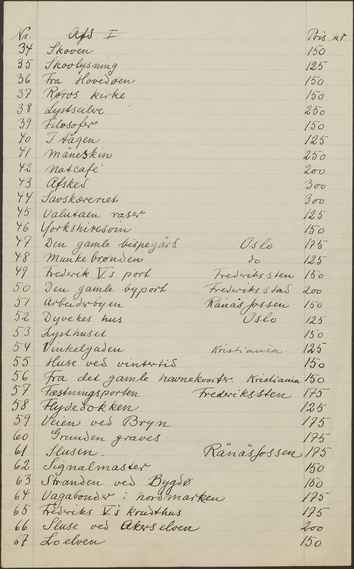 Nr. Afd I Pris kr
34 Skoven 150
35 Skovlysning 125
36 Fra Hovedøen 150
37 Røros kirke 150
38 Lystsalve 250
39 Filosofer 150
40 I tågen 125
41 Måneskin 250
42 Natcafé 200
43 Afsked 300
44 Savskoveriet 300
45 Valutaen raser 125
46 Yorkshiresvin 150
47 Den gamle bispegård Oslo 175
48 Munkebrønden do 125
49 Frederik V's port Fredrikssten 150
50 Den gamle byport Fredriksstad 200
51 Arbeiderbyen Rånåsfossen 150
52 Dyvekes hus Oslo 125
53 Lysthuset 150
54 Vinkelgaden Kristiania 125
55 Huse ved vintertid 150
56 Fra det gamle havnekontr. Kristiania 150
57 Fæstningsporten Fredrikssten 175
58 Flydedokken 125
59 Veien ved Bryn 175
60 Grunden graves 175
61 Slusen Rånåsfossen 175
62 Signalmaster 150
63 Stranden ved Bygdø 150
64 Vagabonder i nordmarken 175
65 Fredriks V's krudthus 175
66 Sluse ved Akerselven 200
67 Loelven 150